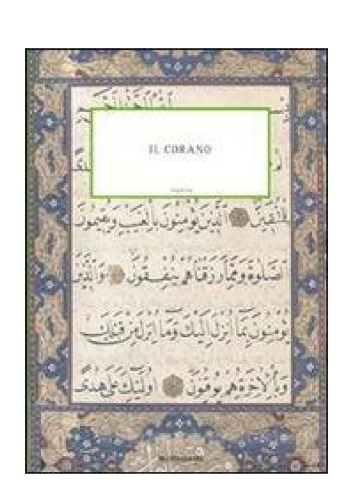 IL CORANO
لِلْمُتَّقِينَ الَّذِينَ يُؤْمِنُونَ بِالْغَيْبِ وَيُقِيمُونَ
الصَّلٰوةَ وَمِمَّا رَزَقْنَاهُمْ يُنْفِقُونَ وَالَّذِينَ
يُؤْمِنُونَ بِمَا اُنْزِلَ اِلَيْكَ وَمَا اُنْزِلَ مِنْ قَبْلِكَ
وَبِالْاٰخِرَةِ هُمْ يُوقِنُونَ اُولٰئِكَ عَلٰى هُدًى